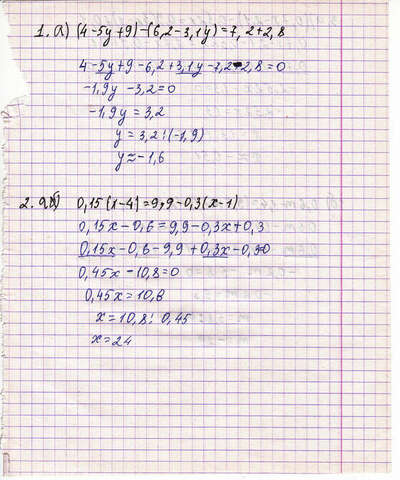 1. а) (4-5y+9)-(6,2-3,1y)=7,2+2,8
4-5y+9-6,2+3,1y-7,2-2,8=0
-1,9y-3,2=0
-1,9y=3,2
y=3,2:(-1,9)
y≈-1,6
2. б) 0,15(x-4)=9,9-0,3(x-1)
0,15x-0,6=9,9-0,3x+0,3
0,15x-0,6-9,9+0,3x-0,3=0
0,45x-10,8=0
0,45x=10,8
x=10,8:0,45
x=24